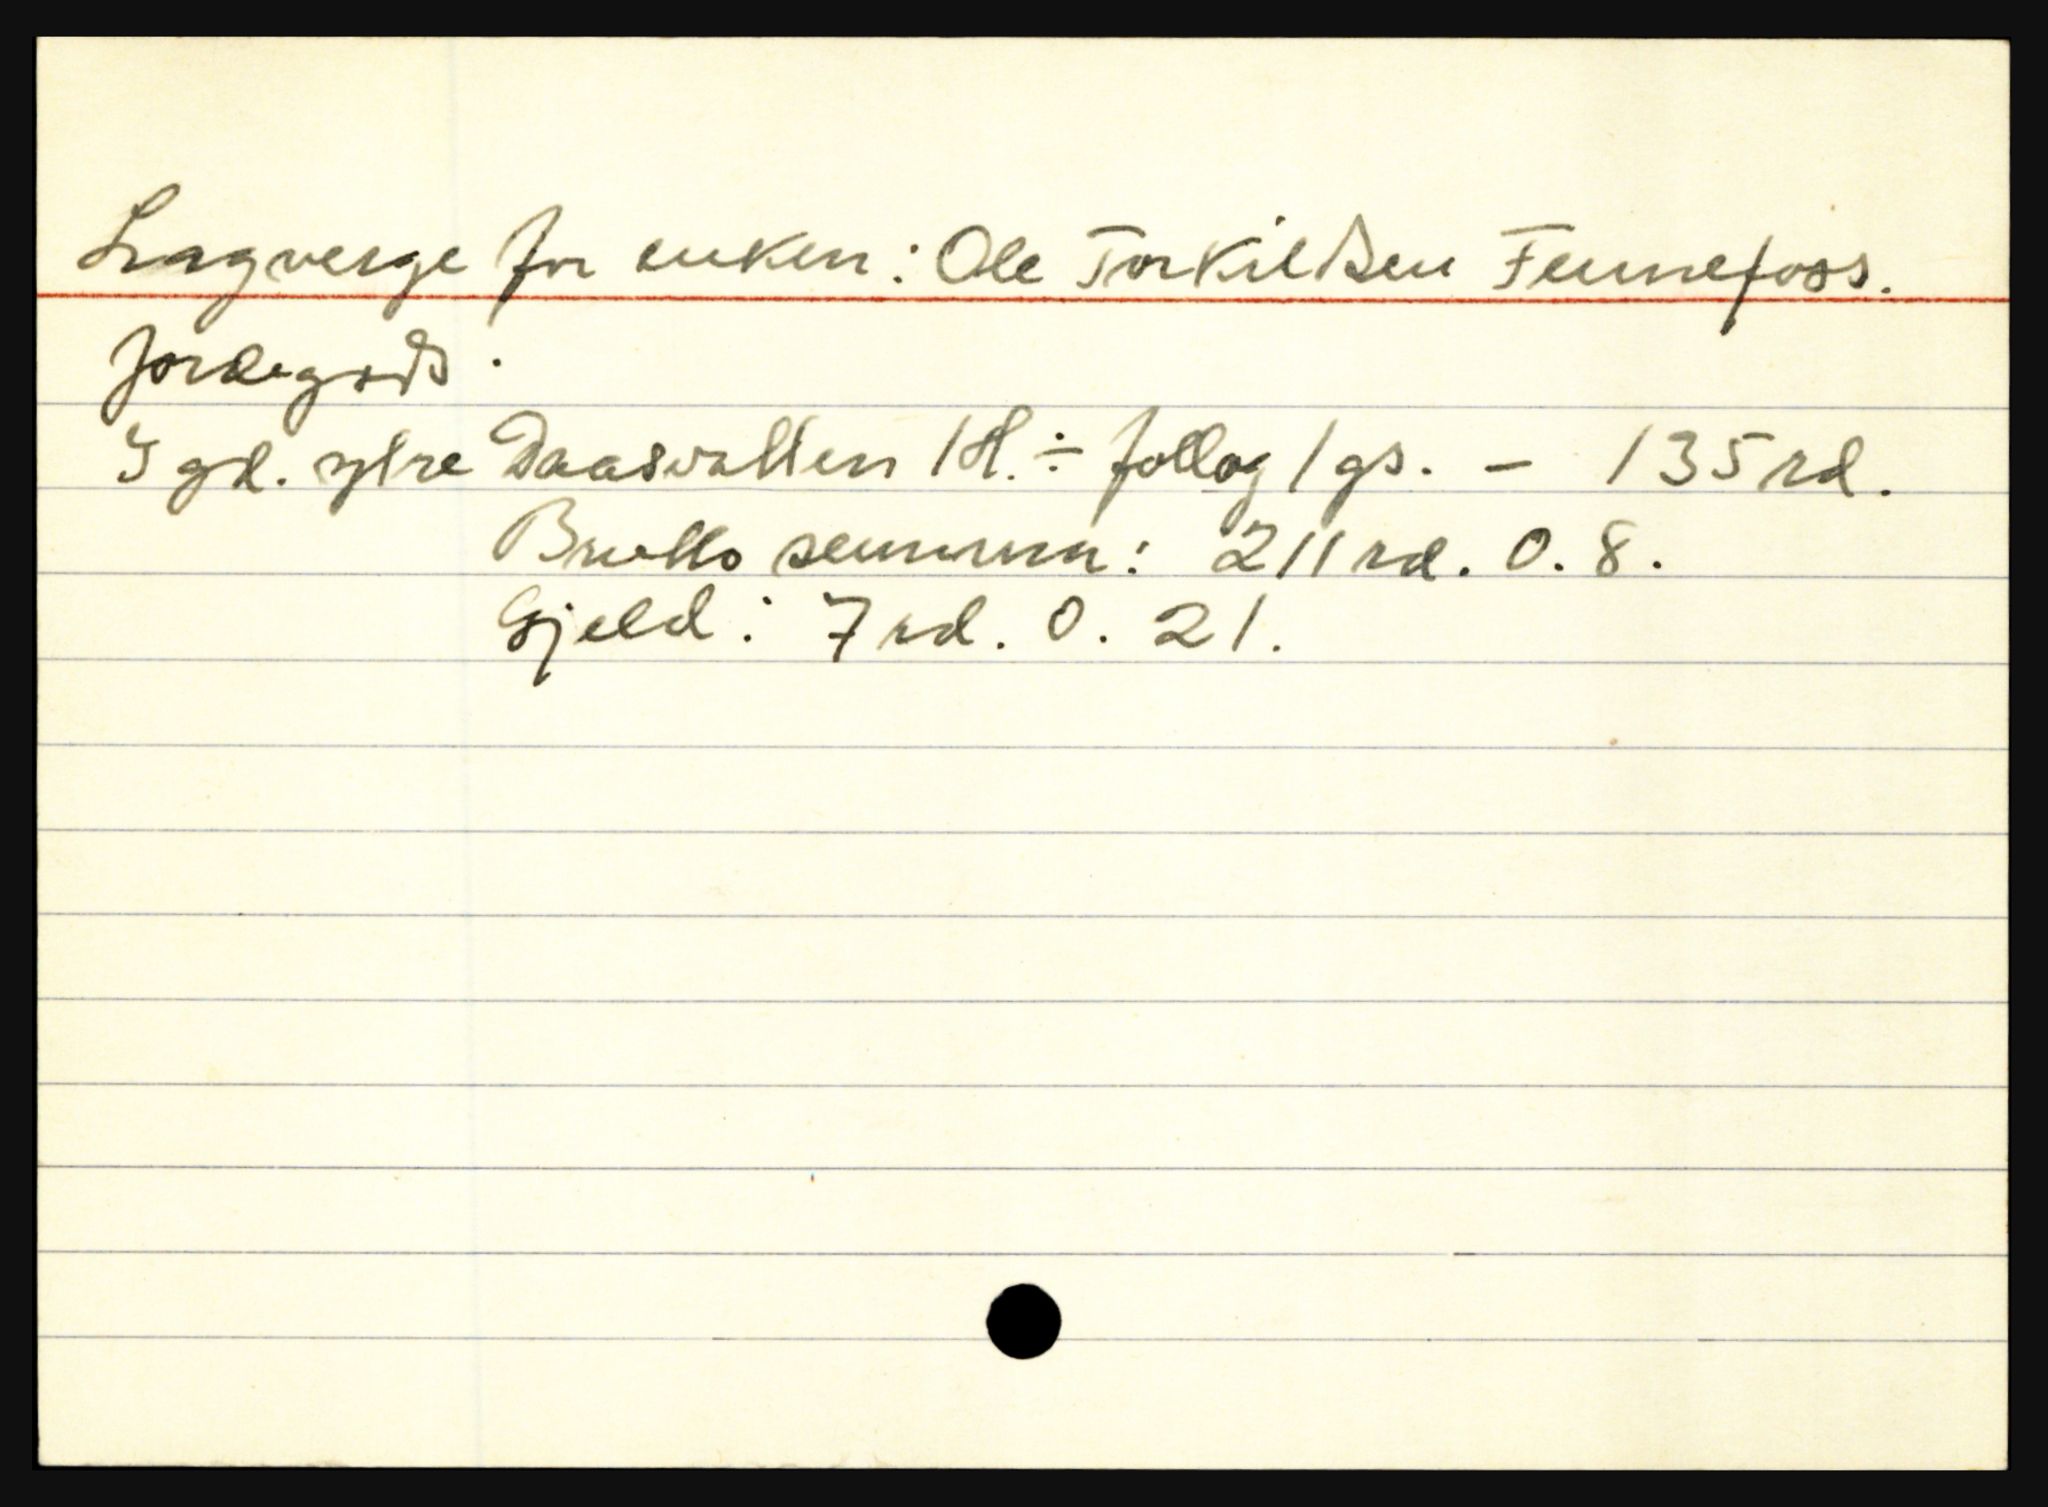 Lagverge for enken: Ole Torkildsen Fennefoss.
Jordegods.
I gd. ytre Daasvatten 1 H. ÷ follog 1 gs. - 135 rd.
Brutto summen: 211 rd. 0. 8.
Gjeld: 7 rd. 0. 21.